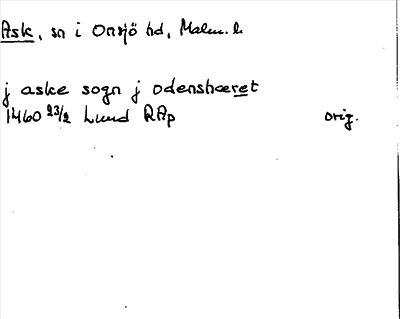 Ask, sn i Onsjö hd, Malm. l.
j aske sogn j odenshæret
1460 23/2 Lund RAp orig.